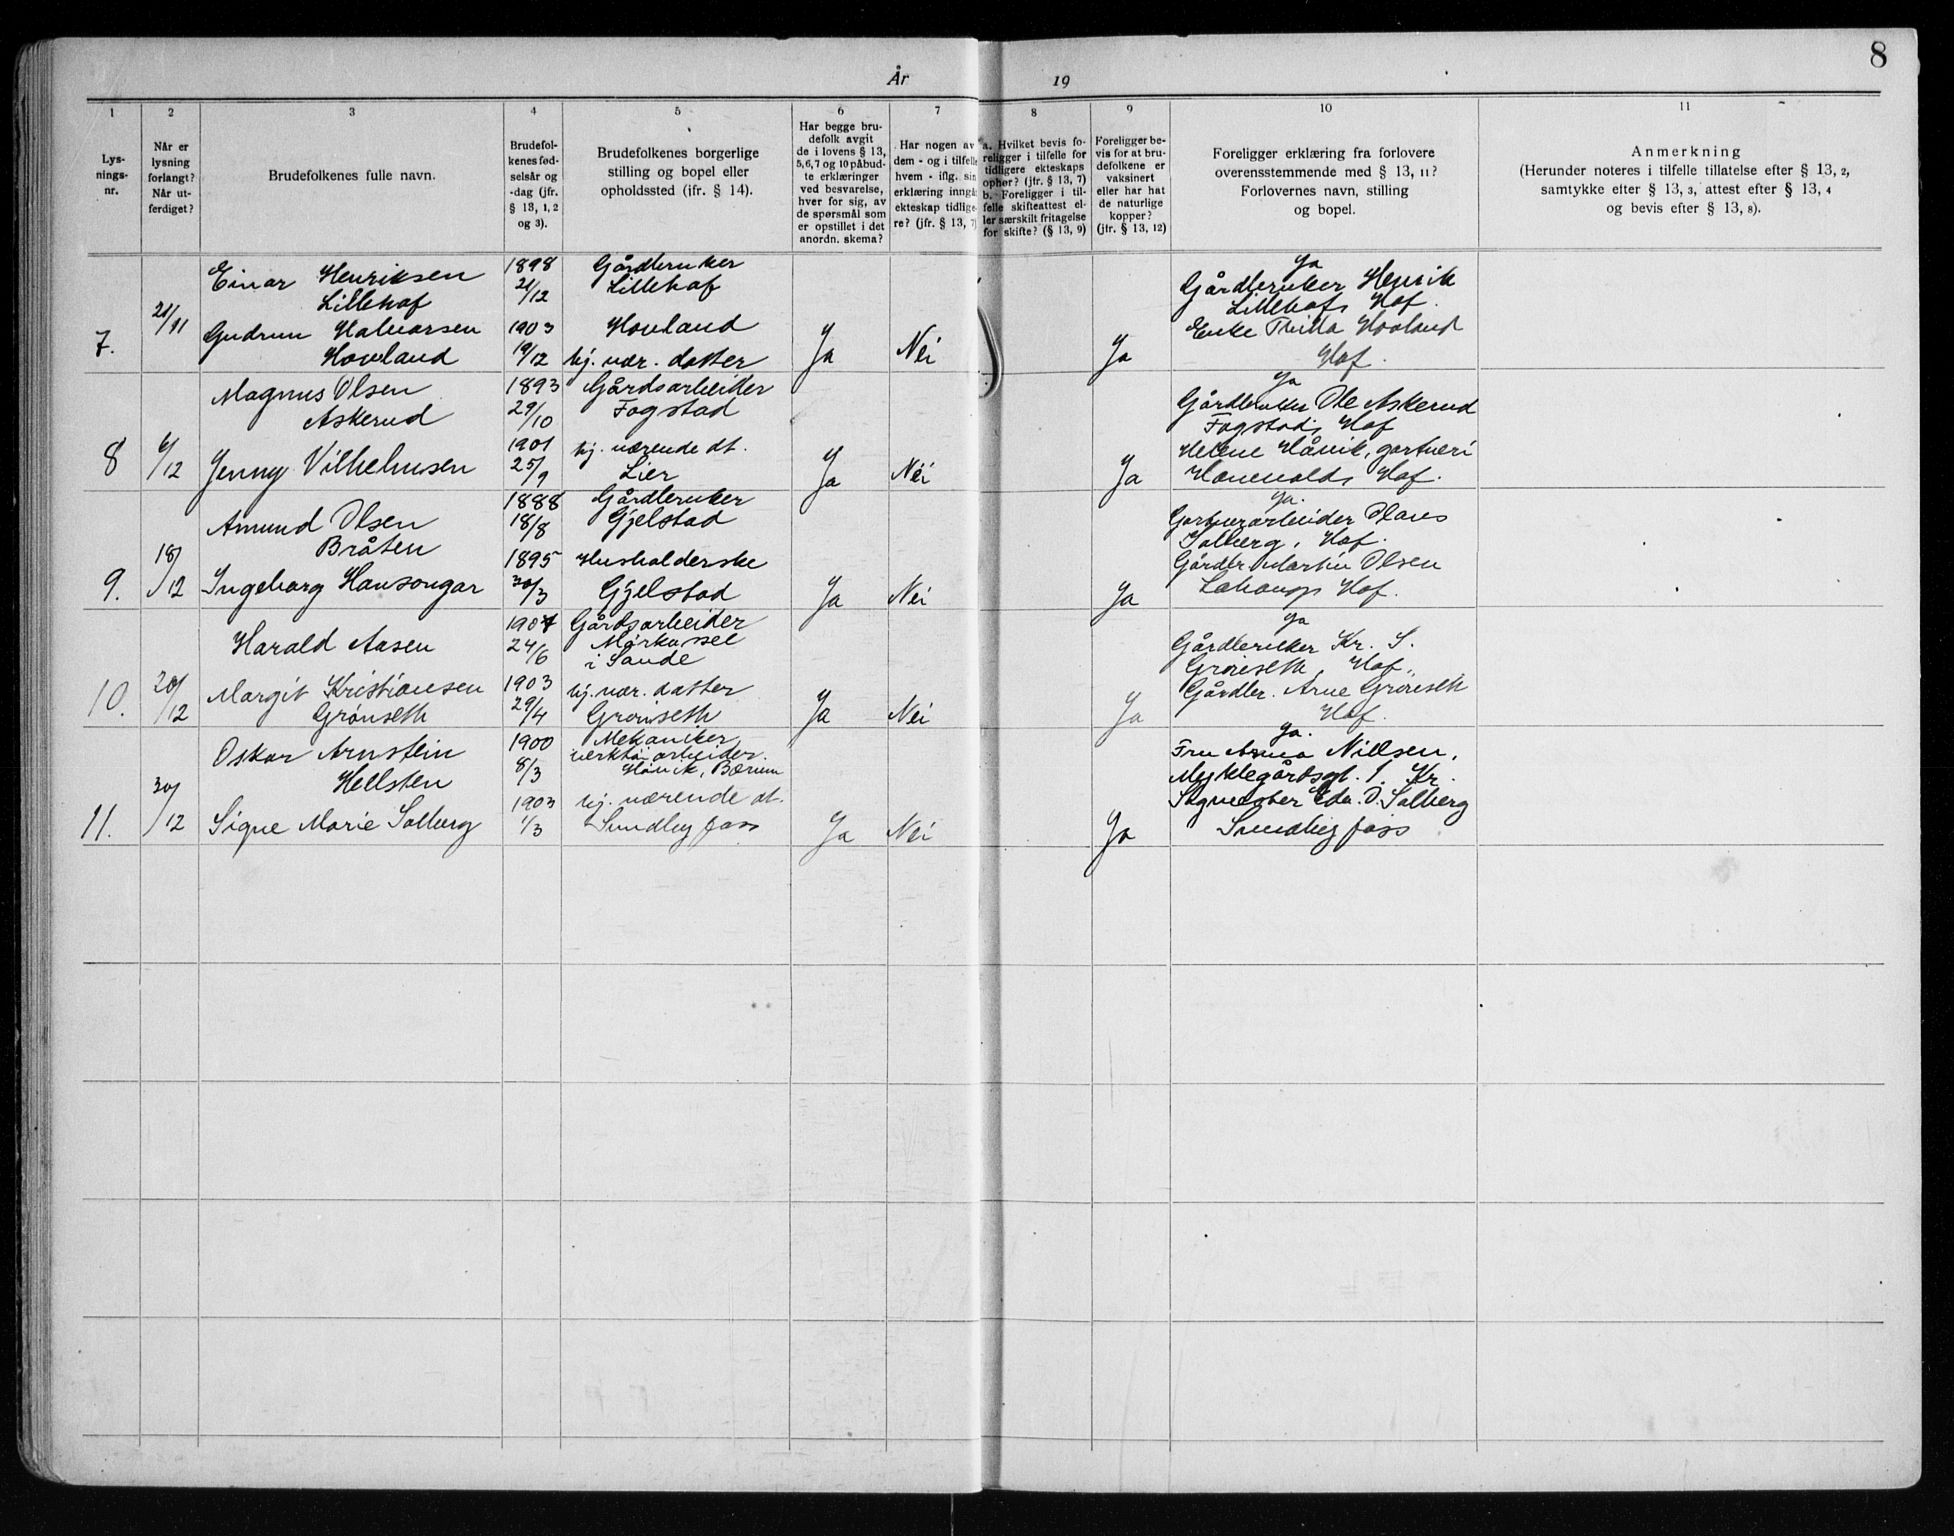 8
År 19
1 2 3 4 5 6 7 8 9 10 11
Lys-
nings-
nr.
Når er
lysning
forlangt?
Når ut-
ferdiget?
Brudefolkenes fulle navn.
Brudefol-
kenes fød-
selsår og
-dag (jfr.
§ 13, 1, 2
og 3).
Brudefolkenes borgerlige
stilling og bopel eller
opholdssted (ifr. § 14).
Har begge bru-
defolk avgit
de i lovens § 13,
5, 6, 7 og 10 påbud-
te erklæringer
ved besvarelse,
hver for sig, av
de spørsmål som
er opstillet i det
anordn. skema?
Har nogen av
dem - og i tilfelle
hvem - iflg. sin
erklæring inngåt
ekteskap tidlige-
re? (jfr. § 13, 7)
a. Hvilket bevis fo-
religger i tilfelle for
tidligere ekteskaps
ophør? (jfr. § 13, 7)
b. Foreligger i til-
felle skifteattest el-
ler særskilt fritagelse
for skifte? (§ 13, 9)
Foreligger be-
vis for at bru-
defolkene er
vaksinert
eller har hat
de naturlige
kopper?
(jfr. § 13, 12)
Foreligger erklæring fra forlovere
overensstemmende med § 13, 11?
Forlovernes navn, stilling
og bopel.
Anmerkning
(Herunder noteres i tilfelle tillatelse efter § 13, 2,
samtykke efter § 13, 3, attest efter § 13, 4
og bevis efter § 13, 8).
7.
21/11
Einar Henriksen
Lillehof
Gudrun Halvorsen
Hovland
1898
21/12
1903
19/12
Gårdbruker
Lillehof
Hovland
hj. vær. datter
Ja
Nei
Ja
Ja
Gårdbruker Henrik
Lillehof, Hof.
Enke Thilla Hovland
Hof.
8
6/12
Magnus Olsen
Askerud
Jenny Vilhelmsen
1893
29/10
1901
25/9
Gårdsarbeider
Fogstad
hj. værende dt.
Lier
Ja
Nei
Ja
Ja
Gårdbruker Ole Askerud
Fogstad, Hof
Helene Håvik, gartneri
Hof.
9.
18/12
Amund Olsen
Bråten
Ingeborg Hansongar
1888
18/8
1895
30/3
Gårdbruker
Gjelstad
Husholderske
Gjelstad
Ja
Nei
Ja
Ja.
Gartnerarbeider Hans
Solberg, Hof.
Gårdbr. Martin Olsen
Hof.
10.
20/12
Harald Aasen
Margit Kristiansen
Grønseth
1904
24/6
1903
29/4
Gårdsarbeider
Markussel
i Sande
hj. vær. datter
Grønseth
Ja
Nei
Ja
Ja
Gårdbruker Kr. S.
Grønseth, Hof,
Gårdbr. Arne Grønseth
Hof.
11.
30/12
Oskar Arnstein
Hellsten
Signe Marie Solberg
1900
8/3
1903
1/3
Mekaniker
verktøiarbeider.
Høvik, Bærum
hj. værende dt.
Sundbyfoss
Ja
Nei
Ja
Ja.
Fru Anna Nielsen,
Myklegårdsgt. 1. Kr.
Edv. O. Solberg
Sundbyfoss